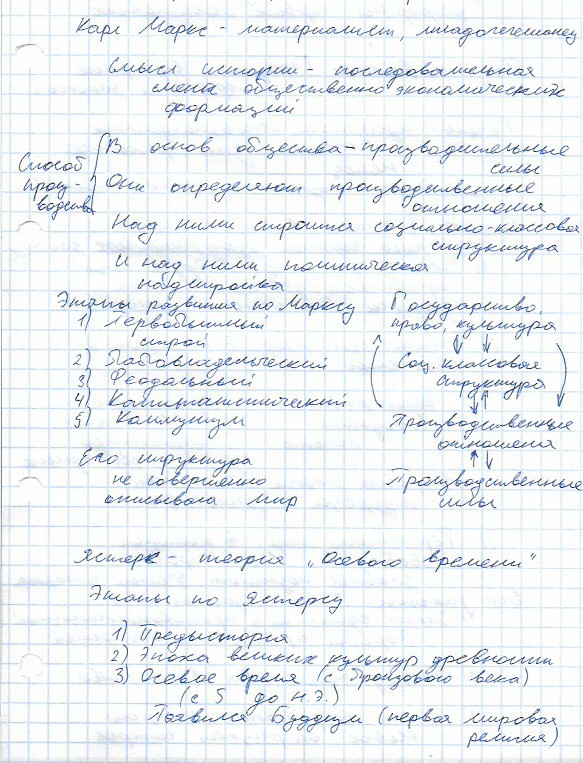 Карл Маркс - материалист, младогегельянец
Смысл истории - последовательная
смена общественно экономических
формаций
Способ
произ-
водства
В основ общества - производительные
силы
Они определяют производственные
отношения
Над ними строится социально-классовая
структура
И над ними политическая
надстройка
Этапы развития по Марксу
1) Первобытный
строй
2) Рабовладельческий
3) Феодальный
4) Капиталистический
5) Коммунизм
Его структура
не совершенно
описывала мир
Государство,
право, культура
Соц. классовая
структура
Производственные
отношения
Производственные
силы
Ясперс - теория "Осевого времени"
Этапы по Ясперсу
1) Предыстория
2) Эпоха великих культур древности
3) Осевое время (с бронзового века)
(с 5 до н.э.)
Появился Буддизм (первая мировая
религия)